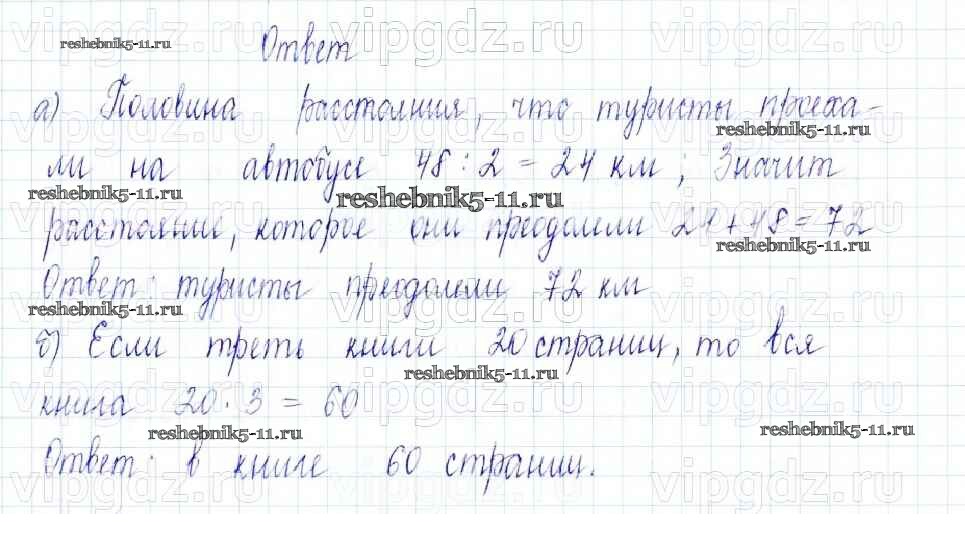 Ответ
а) Половина расстояния, что туристы проеха-
ли на автобусе 48 : 2 = 24 км ; Значит
расстояние, которое они преодолели 24+48=72
Ответ: туристы преодолели 72 км
б) Если треть книги 20 страниц, то вся
книга 20 · 3 = 60
Ответ: в книге 60 страниц.
reshebnik5-11.ru
reshebnik5-11.ru
reshebnik5-11.ru
reshebnik5-11.ru
reshebnik5-11.ru
reshebnik5-11.ru
reshebnik5-11.ru
reshebnik5-11.ru
reshebnik5-11.ru
vipgdz.ru